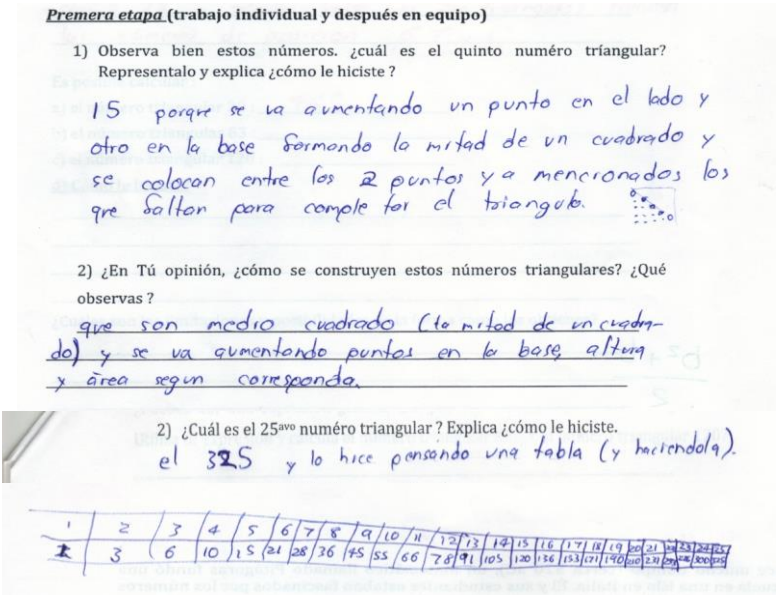 Premera etapa (trabajo individual y después en equipo)
1) Observa bien estos números. ¿cuál es el quinto numéro tríangular?
Representalo y explica ¿cómo le hiciste ?
15 porqre se va avmentando un punto en el lado y
otro en la base formando la mitad de un cuadrado y
se colocan entre los 2 puntos ya mencionados los
qre faltan para comple tar el triangulo.
2) ¿En Tú opinión, ¿cómo se construyen estos números triangulares? ¿Qué
observas ?
que son medio cuadrado (la mitad de un cuadra-
do) y se va aumentando puntos en la base, altura
y área segun corresponda.
2) ¿Cuál es el 25avo numéro triangular ? Explica ¿cómo le hiciste.
el 325 y lo hice pensando una tabla (y haciendola).
1 2 3 4 5 6 7 8 9 10 11 12 13 14 15 16 17 18 19 20 21 22 23 24 25
1 3 6 10 15 21 28 36 45 55 66 78 91 105 120 136 153 171 190 210 231 300 325